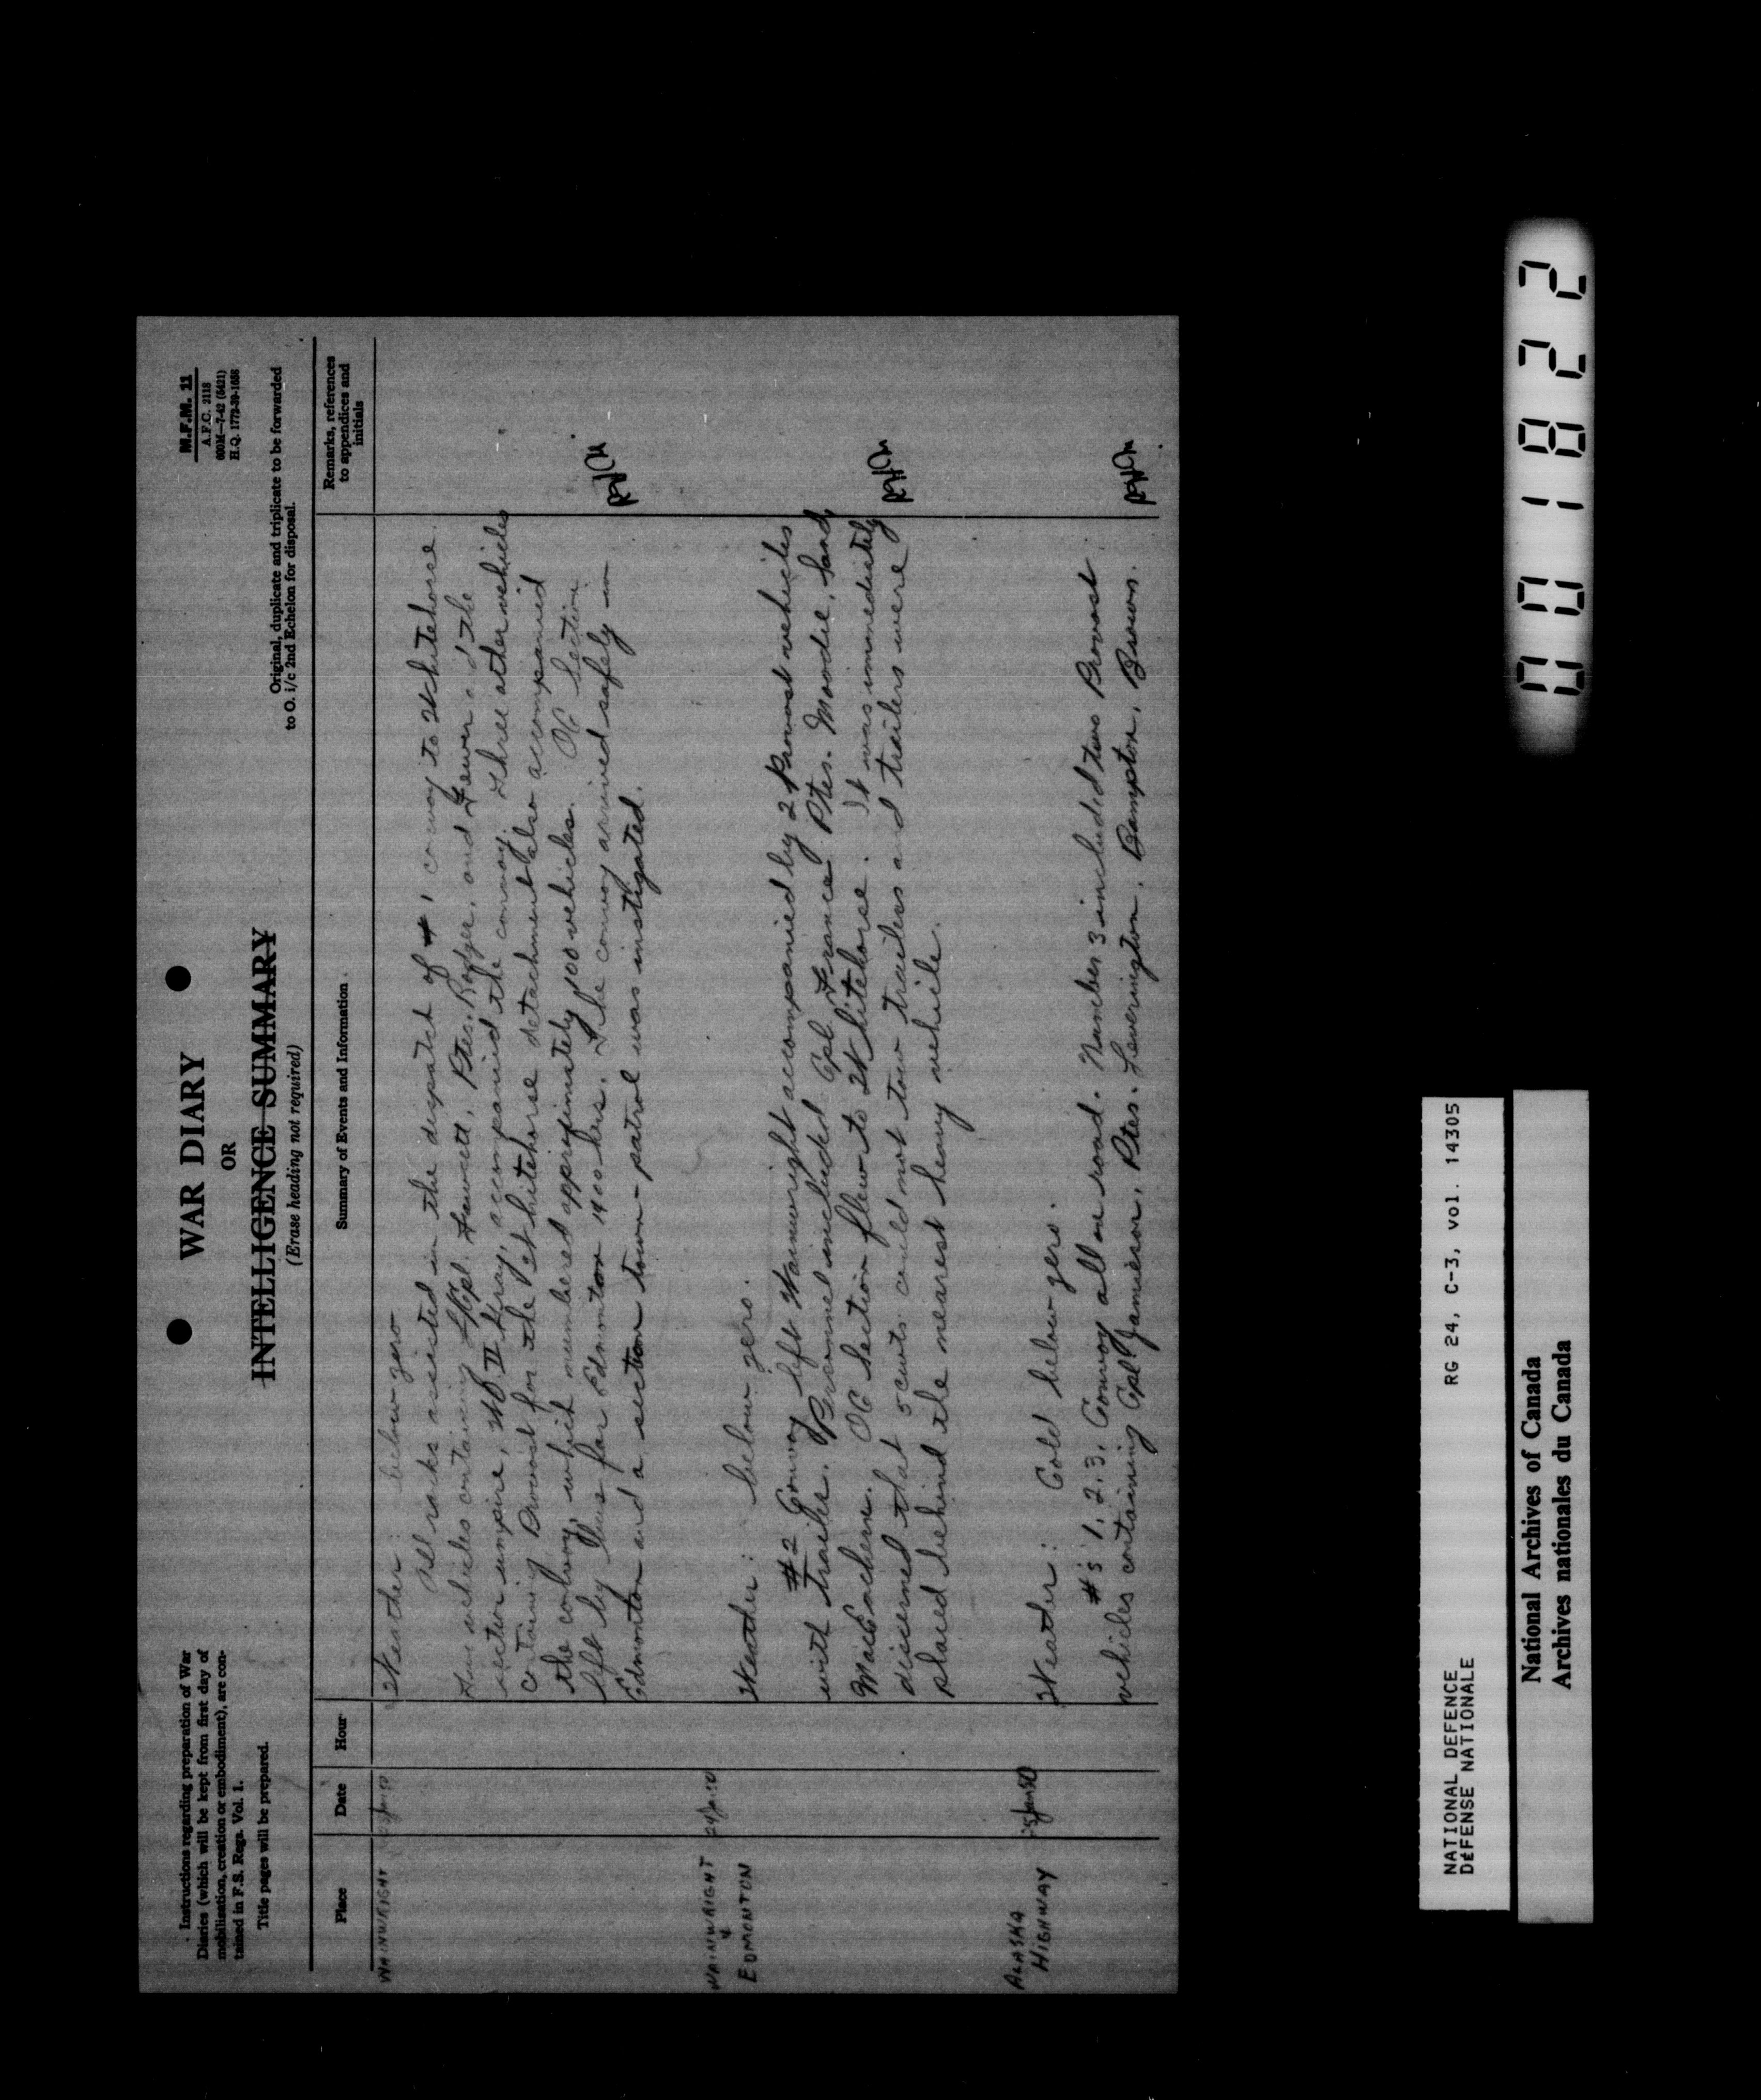 Instructions regarding preparation of War
Diaries (which will be kept from first day of
mobilisation, creation or embodiment), are con-
tained in F.S. Regs. Vol. 1.
Title pages will be prepared.
WAR DIARY
OR
INTELLIGENCE SUMMARY
(Erase heading not required)
M.F.M. 11
A.F.C. 2118
600M—7-42 (5421)
H.Q. 1772-39-1658
Original, duplicate and triplicate to be forwarded
to O. i/c 2nd Echelon for disposal.
Place
Date
Hour
Summary of Events and Information
Remarks, references
to appendices and
initials
WAINWRIGHT
Weather: below zero
All ranks assisted in the dispatch of #1 convoy to Whitehorse.
vehicles containing Fawcett, Ptes. Rodger, and the
section umpire, WO II Gray, accompanied the convoy. Three other vehicles
containing Provost for the Whitehorse detachment also accompanied
the convoy, which numbered approximately 100 vehicles. OC Section
left by for Edmonton 1400 hrs. The convoy arrived safely in
Edmonton and a section town-patrol was instigated.
WAINWRIGHT
&
EDMONTON
24 Jan 50
Weather: below zero.
#2 Convoy left Wainwright accompanied by 2 Provost vehicles
with trailer. Personnel included Cpl. France Ptes. Moodie, Sand,
MacEachern. OC Section flew to Whitehorse. It was immediately
discerned that 5 cwts could not tow trailers and trailers were
placed behind the nearest heavy vehicle.
ALASKA
HIGHWAY
25 Jan 50
Weather: Cold below zero.
#'s 1, 2, 3, Convoy all on road. Number 3 included two Provost
vehicles containing Cpl Jamieson, Ptes. Leverington, Bampton, Brown.
NATIONAL DEFENCE
DÉFENSE NATIONALE
RG 24, C-3, vol. 14305
National Archives of Canada
Archives nationales du Canada
001822